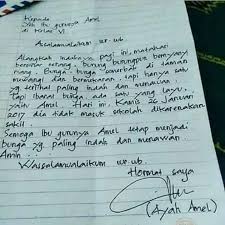 Kepada
Yth Ibu gurunya Amel
di Kelas VI
Assalamualaikum wr. wb.
Alangkah indahnya pagi ini, matahari
bersinar terang, burung burungpun bernyanyi
riang. Bunga - bunga bermekaran di taman
mewangi dan berwarna. tapi hanya satu
yg terlihat paling indah dan menawan.
Tapi ibarat bunga ada satu yang layu,
yaitu Amel. Hari ini. Kamis 26 Januari
2017 dia tidak masuk sekolah dikarenakan
sakit.
Semoga Ibu gurunya Amel tetap menjadi
bunga yg. paling indah dan menawan
Amin...
Wassalamualaikum wr. wb.
Hormat saya
(Ayah Amel)